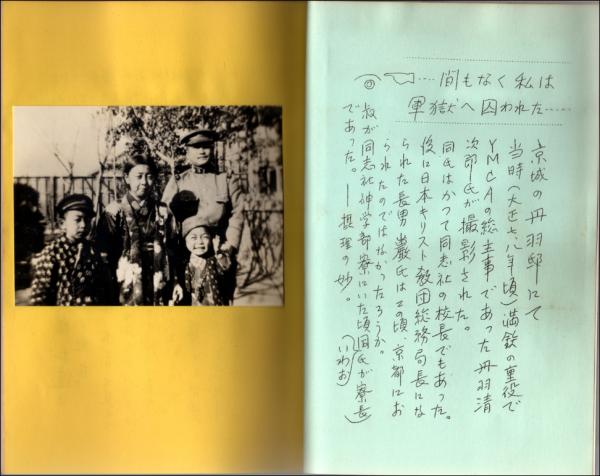 ‥‥間もなく私は
軍獄へ囚われた‥‥‥
京城の丹羽邸にて
当時(大正七、八年頃)満鉄の重役で
YMCAの総主事であった丹羽清
次郎氏が撮影された。
同氏はかつて同志社の校長でもあった。
後に日本キリスト教団総務局長にな
られた長男巌氏はこの頃、京都にお
られたのではなかったろうか。
(いわお)
叔が同志社神学部寮にいた頃同氏が寮長
であった。―摂理の妙。